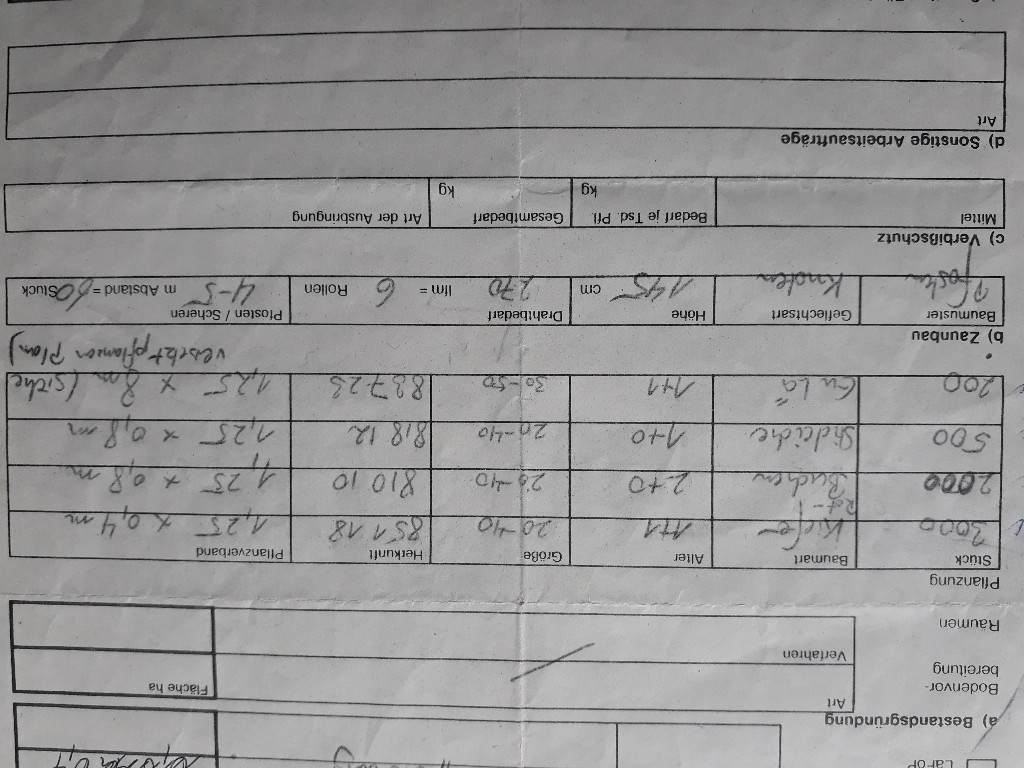 LaFoP
a) Bestandsgründung
Bodenvor-
bereitung
Art
Fläche ha
Verfahren
Räumen
Pflanzung
Stück Baumart Alter Größe Herkunft Pflanzverband
3000 Kiefer 1+1 20-40 851 18 1,25 x 0,4 m
2000 Rot-Buchen 2+0 20-40 810 10 1,25 x 0,8 m
500 Stieleiche 1+0 20-40 818 12 1,25 x 0,8 m
200 Eu Lä 1+1 30-50 837 23 1,25 x 8 m (siehe
versetzt pflanzen Plan)
b) Zaunbau
Baumuster Geflechtsart Höhe Drahtbedarf Pfosten / Scheren
Pfosten Knoten 145 cm 270 lfm = 6 Rollen 4-5 m Abstand = 60 Stück
c) Verbißschutz
Mittel Bedarf je Tsd. Pfl. Gesamtbedarf Art der Ausbringung
kg kg
d) Sonstige Arbeitsaufträge
Art